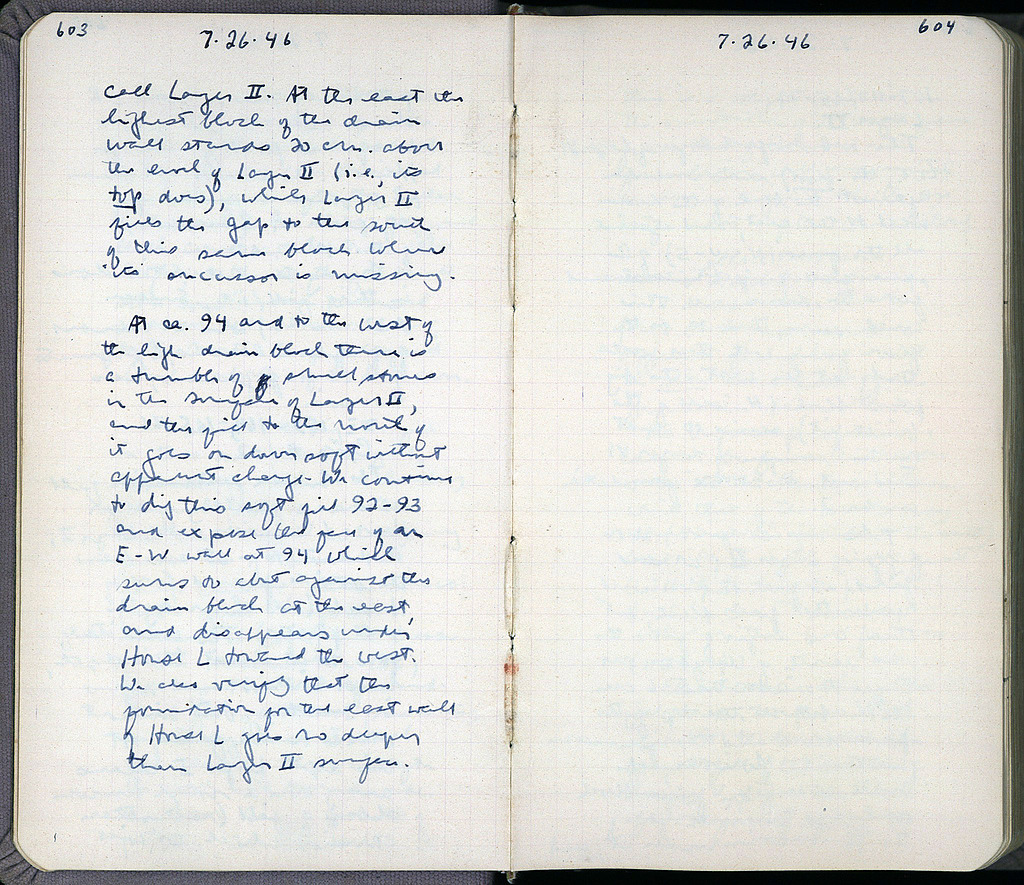 603
7·26·46
call Layer II. At the east the
highest block of the drain
wall stands 20 cm. above
the level of Layer II (i.e., its
top does), while Layer II
fills the gap to the south
of this same block where
its successor is missing.
At ca. 94 and to the west of
the high drain block there is
a tumble of small stones
in the surface of Layer II,
and the fill to the north of
it goes on down soft without
apparent change. We continue
to dig this soft fill 92-93
and expose the face of an
E-W wall at 94 which
seems to abut against the
drain block at the east,
and disappears under
House L toward the west.
We also verify that the
foundation for the east wall
of House L goes no deeper
than Layer II surface.
604
7·26·46